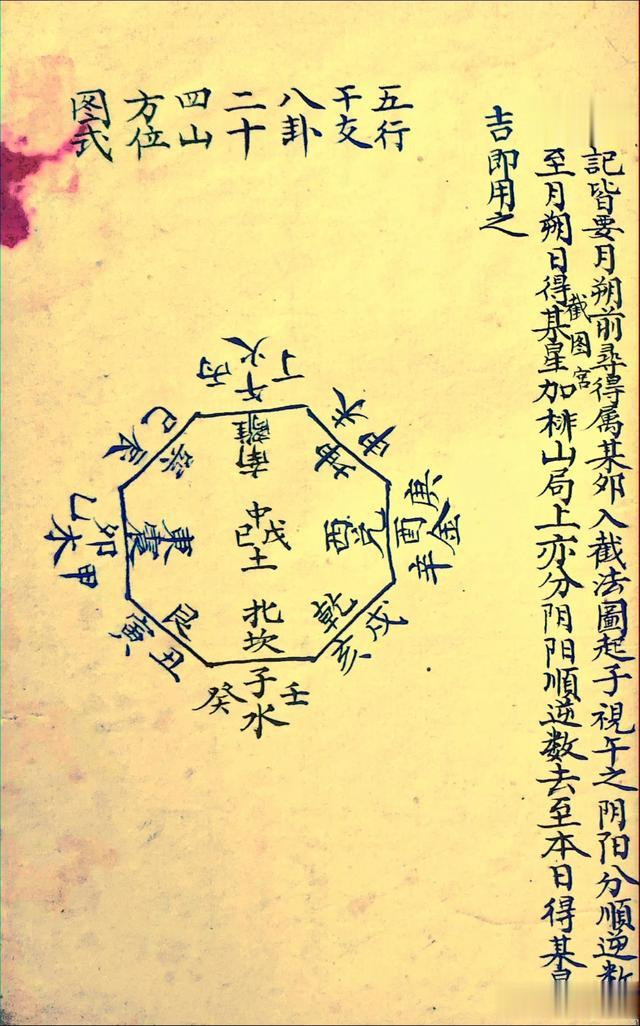 記皆要月朔前尋得属某卯入截法圖起子視午之阴阳分順逆数
至月朔日得某星加桃山局上亦分阴阳順逆数去至本日得某
截图宮
吉即用之
五行
干支
八卦
二十
四山
方位
图式
丙午丁
火
南離
巳辰
巽
坤
申未
乙卯甲
木
東震
中
戊己
土
西兌
庚酉辛
金
寅丑
艮
北坎
乾
戌亥
癸子壬
水